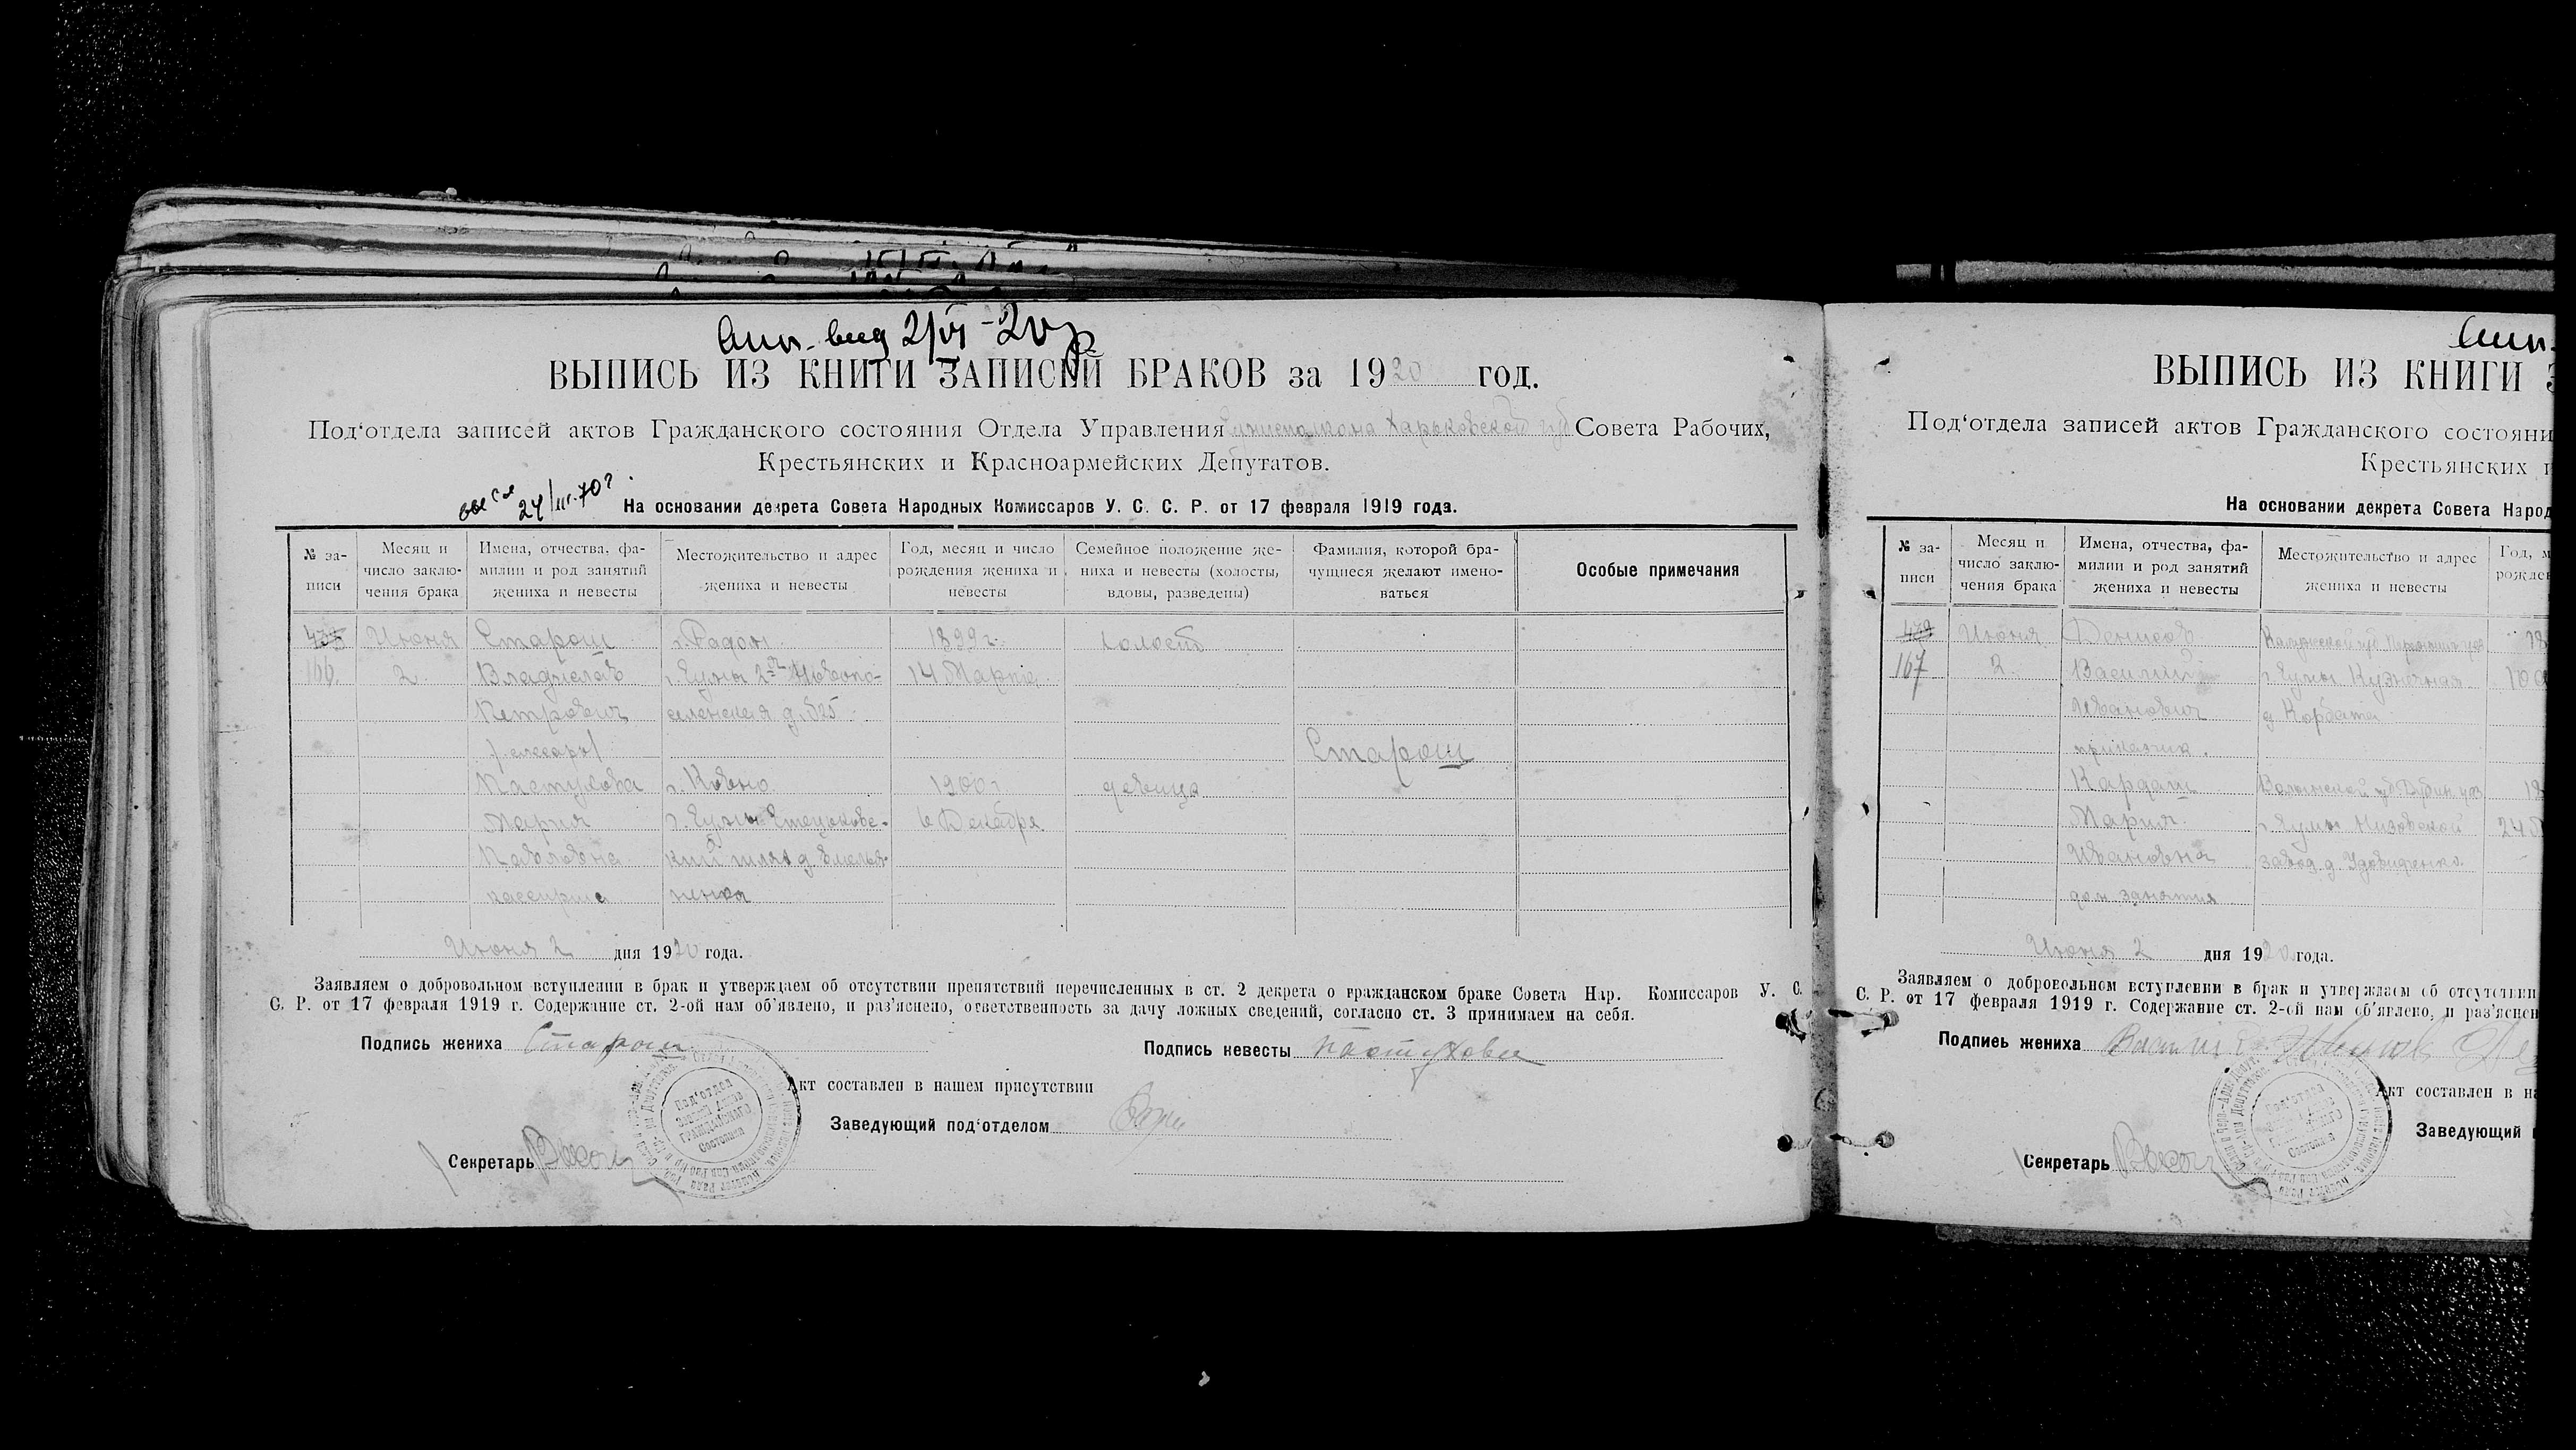 2/VI-20 г
ВЫПИСЬ ИЗ КНИГИ ЗАПИСЕЙ БРАКОВ за 1920 год.
Под‘отдела записей актов Гражданского состояния Отдела Управления Харьковской губ Совета Рабочих,
Крестьянских и Красноармейских Депутатов.
24/III-70 г.
На основании декрета Совета Народных Комиссаров У. С. С. Р. от 17 февраля 1919 года.
№ за-
писи
Месяц и
число заклю-
чения брака
Имена, отчества, фа-
милии и род занятий
жениха и невесты
Местожительство и адрес
жениха и невесты
Год, месяц и число
рождения жениха и
невесты
Семейное положение же-
ниха и невесты (холосты,
вдовы, разведены)
Фамилия, которой бра-
чущиеся желают имено-
ваться
Особые примечания
Июня Старош г. Радом 1899 г. холост
166. 2 Владислав г. Сумы 2-я Новопо- 14 Марта
Петрович селенская д. 525
слесарь Старош
Пастухова г. Ковно 1900 г. девица
Мария г. Сумы 6 Декабря
Павловна
кассирша ненка
Июня 2 дня 1920 года.
Заявляем о добровольном вступлении в брак и утверждаем об отсутствии препятствий перечисленных в ст. 2 декрета о гражданском браке Совета Нар. Комиссаров У. С.
С. Р. от 17 февраля 1919 г. Содержание ст. 2-ой нам об’явлено, и раз’яснено, ответственность за дачу ложных сведений, согласно ст. 3 принимаем на себя.
Подпись жениха Старош Подпись невесты Пастухова
Акт составлен в нашем присутствии
Заведующий под‘отделом
Секретарь
Под‘отдел
Гражданского
Состояния
ВЫПИСЬ ИЗ КНИГИ З
Под‘отдела записей актов Гражданского состояни
Крестьянских
На основании декрета Совета Народ
№ за-
писи
Месяц и
число заклю-
чения брака
Имена, отчества, фа-
милии и род занятий
жениха и невесты
Местожительство и адрес
жениха и невесты
Год, м
рожден
Июня Денисов Калужской губ 18
167 2. Василий г. Сумы Кузнечная
Иванович д. Корбата
приказчик.
Кардаш Волынской губ Дубин. уез 18
Мария г. Сумы Низовской 24
Ивановна завод д. Удовиченко.
дом. занятия
Июня 2 дня 1920 года.
Заявляем о добровольном вступлении в брак и утверждаем об отсутствии
С. Р. от 17 февраля 1919 г. Содержание ст. 2-ой нам об’явлено, и раз’яснен
Подпись жениха
Акт составлен в на
Заведующий
Секретарь